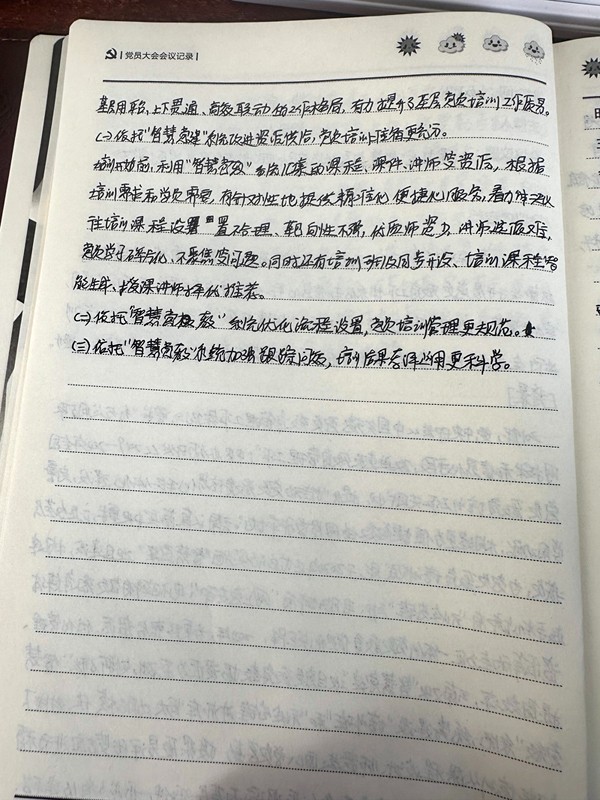 党员大会会议记录
基层用职、上下贯通、高效联动的工作格局，有力提升了基层党员培训工作质量。
(一)依托"智慧党建"系统改进资源供给，党员培训上情更充分。
培训开始前，利用"智慧党教"系统汇集动课程、课件、讲师等资源，根据
培训需求和学员需要，有针对性地提供精准化、便捷化服务，着力解决以
往培训课程设置 置不合理、靶向性不强，优质师资少、讲师选派难，
党员学习碎片化、不聚焦等问题。同时还有培训班次同步开设、培训课程智
能生成、授课讲师择优推荐。
(二)依托"智慧党教"系统优化流程设置，党员培训管理更规范。
(三)依托"智慧党教"系统加强跟踪问效，培训结果运用更科学。